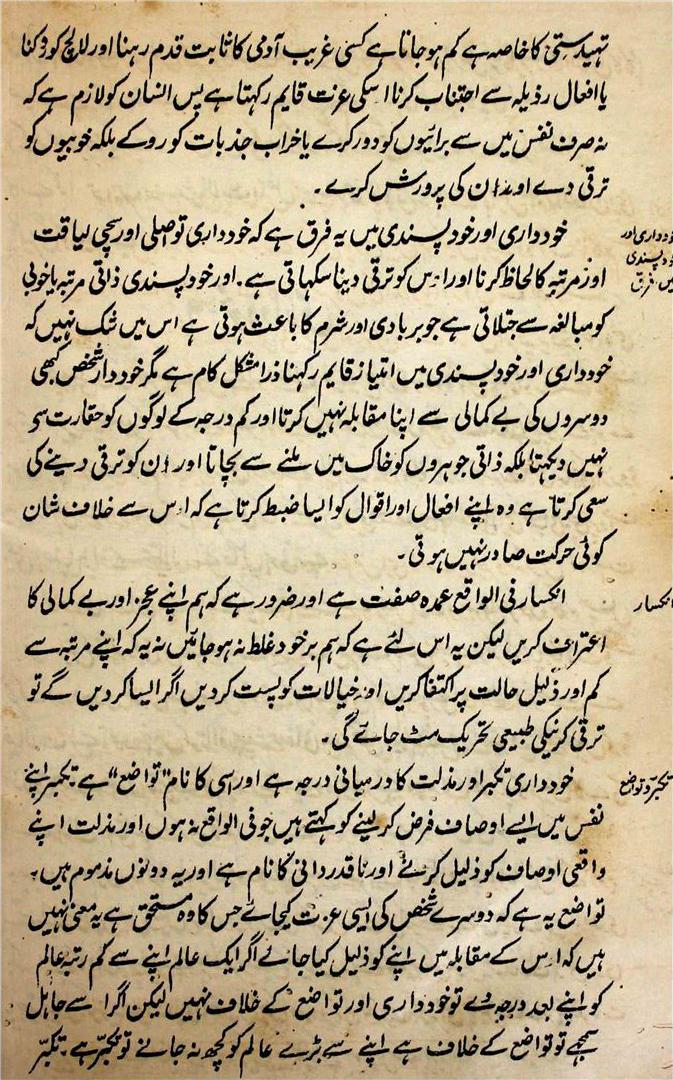 تہیدستی کا خاصہ ہے کم ہو جاتا ہے کسی غریب آدمی کا ثابت قدم رہنا اور لالچ کو روکنا
یا افعال رذیلہ سے اجتناب کرنا اسکی عزت قایم رکہتا ہے پس انسان کو لازم ہے کہ
نہ صرف نفس میں سے برائیوں کو دور کرے یا خراب جذبات کو روکے بلکہ خوبیوں کو
ترقی دے اور ان کی پرورش کرے ۔
خودداری اور خود پسندی میں یہ فرق ہے کہ خودداری تو اصلی اور سچی لیاقت
خودداری اور
خود پسندی
میں فرق
اور مرتبہ کا لحاظ کرنا اور اس کو ترقی دینا سکہاتی ہے ۔ اور خود پسندی ذاتی مرتبہ یا خوبی
کو مبالغہ سے جتلاتی ہے جو بربادی اور شرم کا باعث ہوتی ہے اس میں شک نہیں کہ
خودداری اور خود پسندی میں امتیاز قایم رکہنا ذرا مشکل کام ہے مگر خوددار شخص کبھی
دوسروں کی بے کمالی سے اپنا مقابلہ نہیں کرتا اور کم درجہ کے لوگوں کو حقارت سے
نہیں دیکہتا بلکہ ذاتی جوہروں کو خاک میں ملنے سے بچاتا اور ان کو ترقی دینے کی
سعی کرتا ہے وہ اپنے افعال اور اقوال کو ایسا ضبط کرتا ہے کہ اس سے خلاف شان
کوئی حرکت صادر نہیں ہوتی ۔
انکسار فی الواقع عمدہ صفت ہے اور ضرور ہے کہ ہم اپنے عجز اور بے کمالی کا
انکسار
اعتراف کریں لیکن یہ اس لئے ہے کہ ہم برخود غلط نہ ہو جائیں نہ یہ کہ اپنے مرتبہ سے
کم اور ذلیل حالت پر اکتفا کریں اور خیالات کو پست کر دیں اگر ایسا کر دیں گے تو
ترقی کرنیکی طبیعی تحریک مٹ جائے گی ۔
خودداری تکبر اور مذلت کا درمیانی درجہ ہے اور اسی کا نام "تواضع" ہے ۔ تکبر اپنے
تکبر و تواضع
نفس میں ایسے اوصاف فرض کر لینے کو کہتے ہیں جو فی الواقع نہ ہوں اور مذلت اپنے
واقعی اوصاف کو ذلیل کرنے اور ناقدردانی کا نام ہے اور یہ دونوں مذموم ہیں ۔
تواضع یہ ہے کہ دوسرے شخص کی ایسی عزت کیجائے جس کا وہ مستحق ہے یہ معنی نہیں
ہیں کہ اس کے مقابلہ میں اپنے کو ذلیل کیا جائے اگر ایک عالم اپنے سے کم رتبہ عالم
کو اپنے بعد درجہ دے تو خودداری اور تواضع کے خلاف نہیں لیکن اگر اسے جاہل
سمجھے تو تواضع کے خلاف ہے اپنے سے بڑے عالم کو کچھ نہ جانے تو تکبر ہے ۔ تکبر